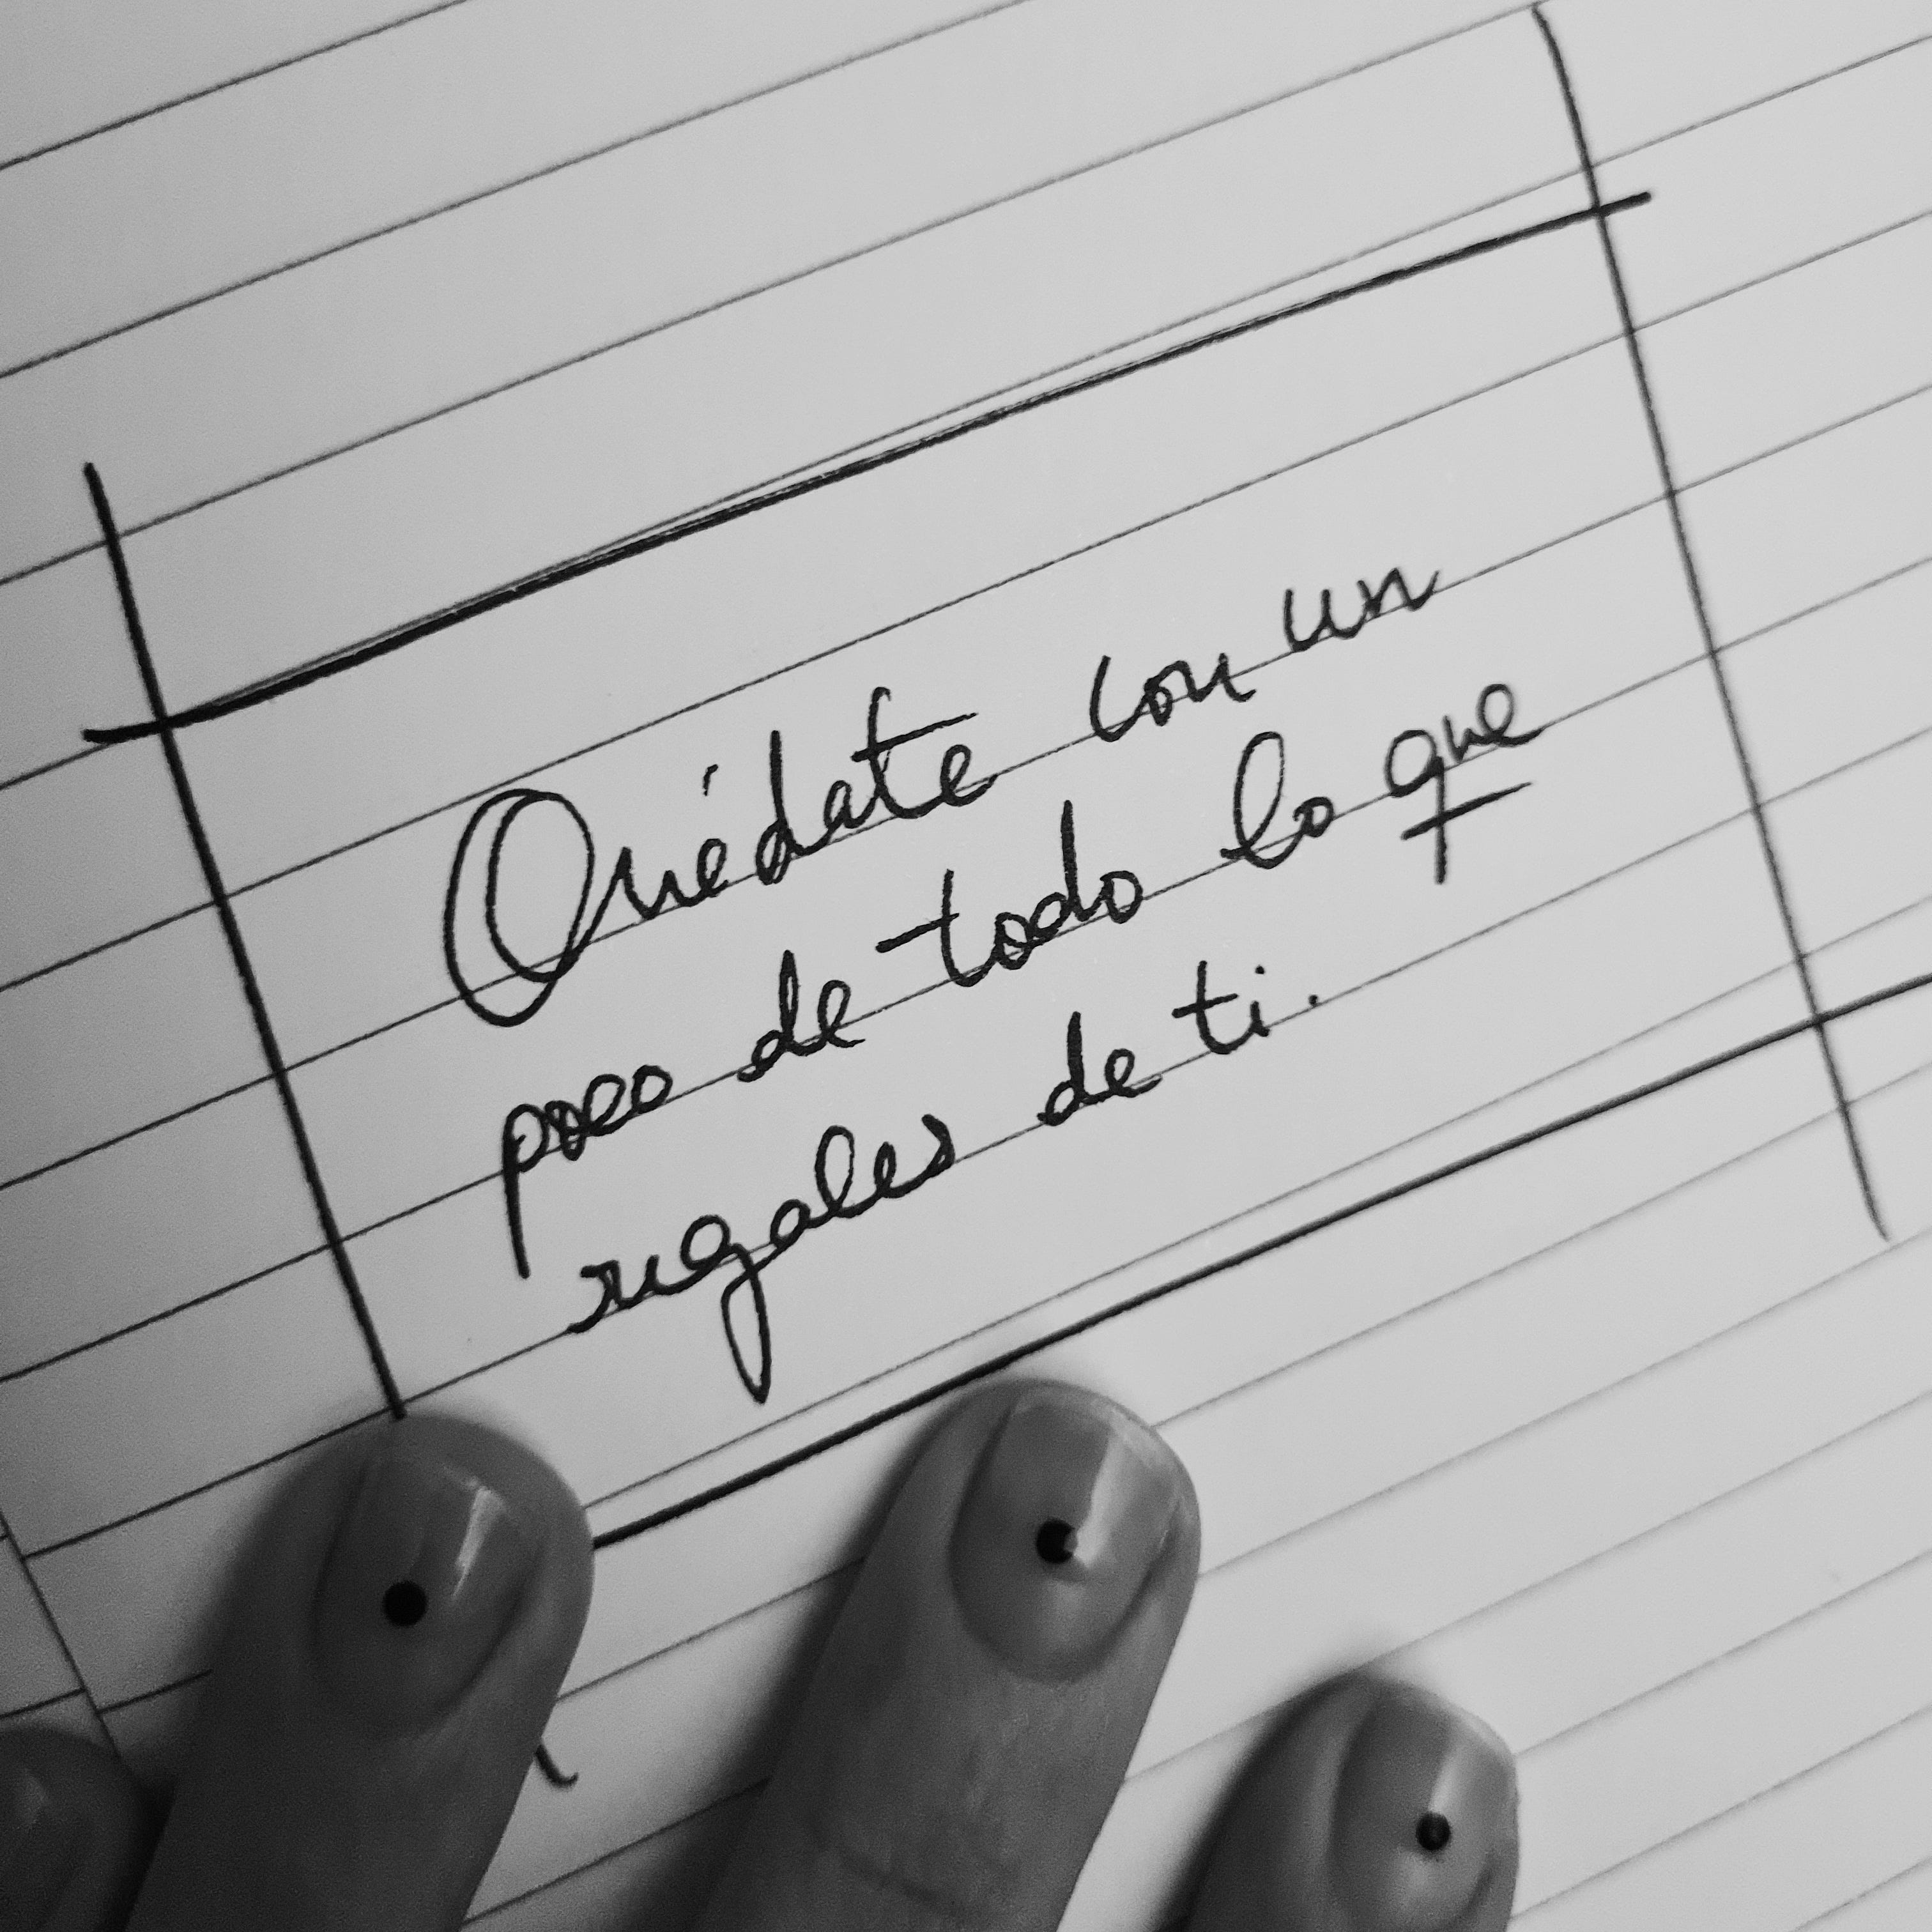 Quédate con un
poco de todo lo que
regales de ti.